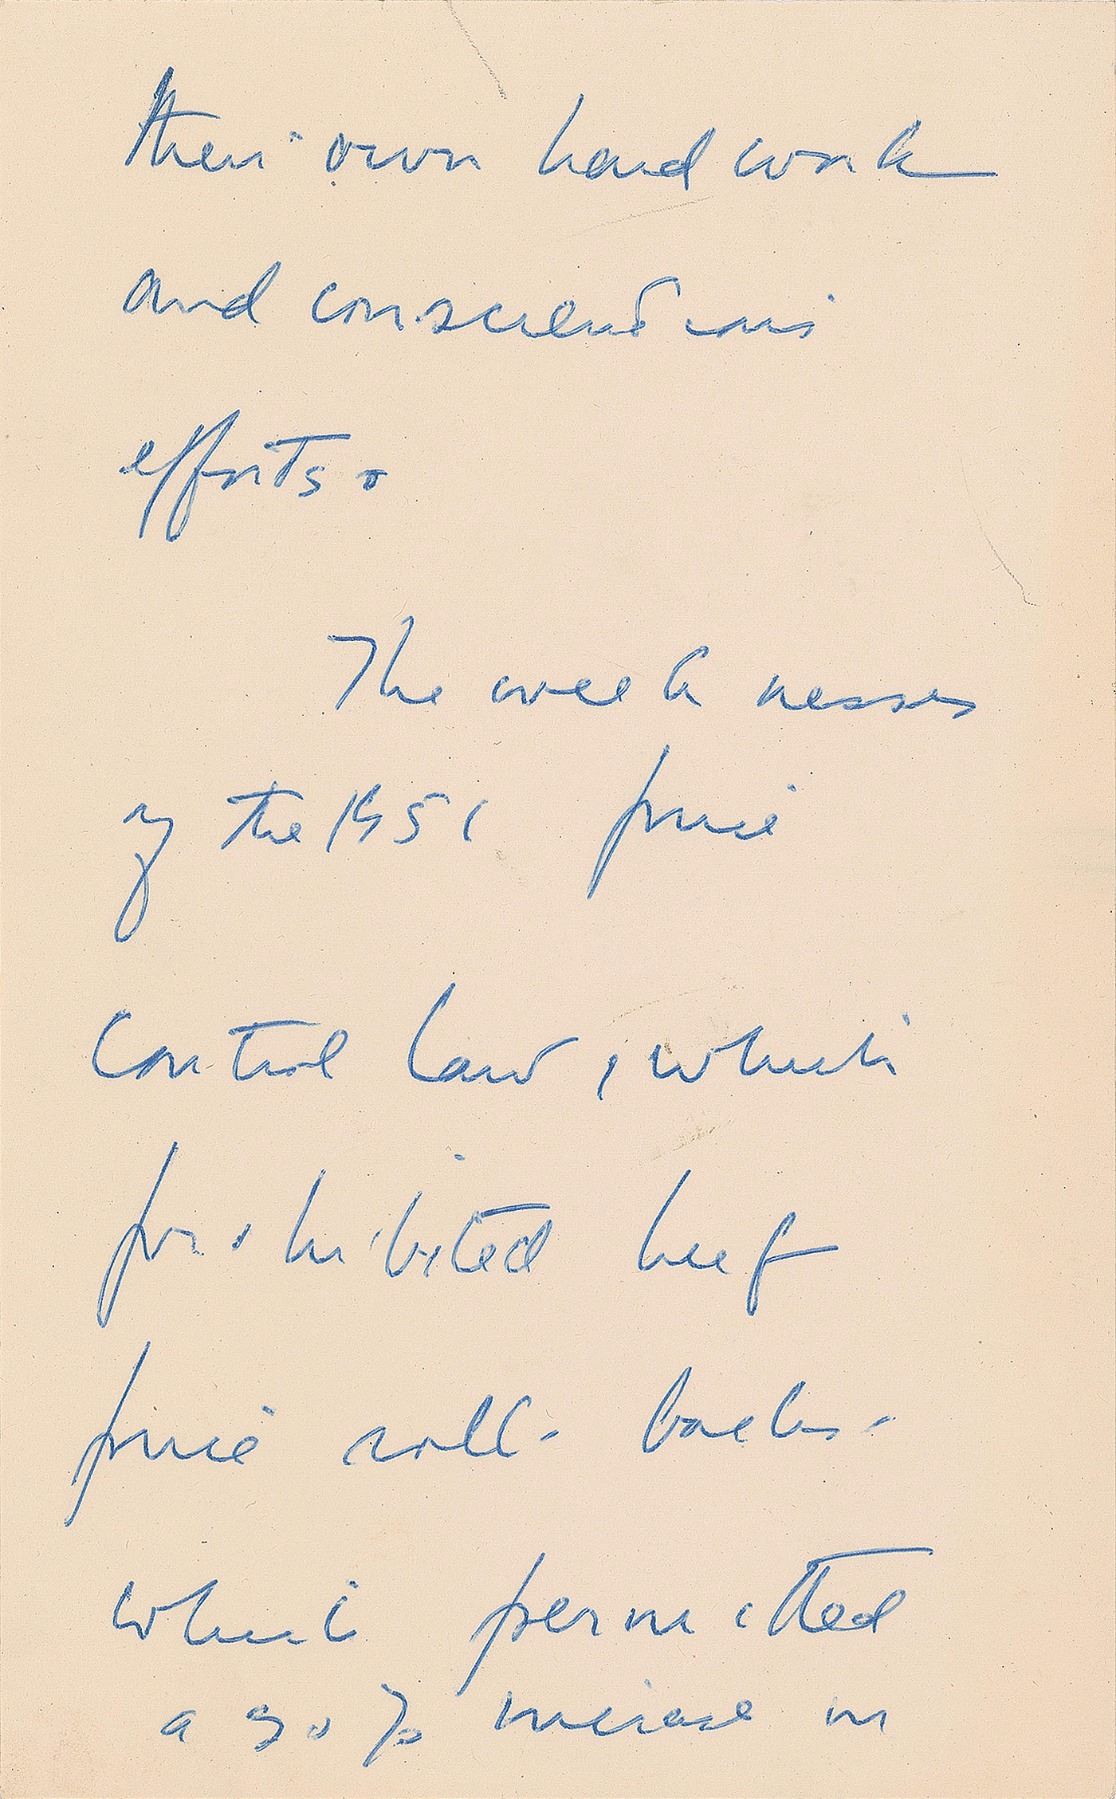 their own hard work
and conscientious
efforts.
The weaknesses
of the 1951 price
control law, which
prohibited beef
price roll-backs -
which permitted
a 90% increase in